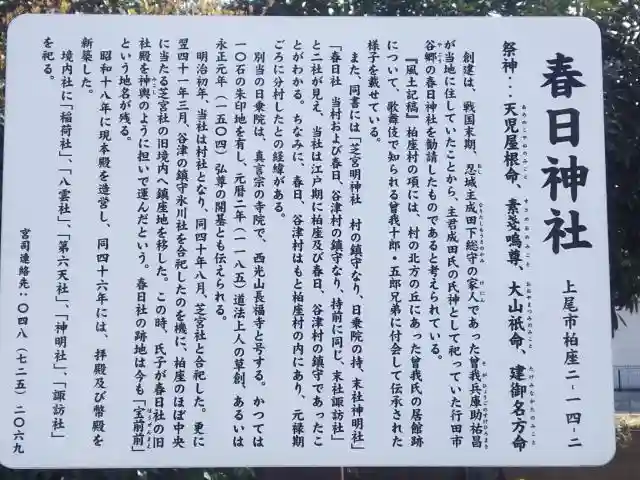 春日神社
上尾市柏座二-一四-二
祭神…天児屋根命、素戔嗚尊、大山祇命、建御名方命
創建は、戦国末期、忍城主成田下総守の家人であった曽我兵庫助祐昌
が当地に住していたことから、主君成田氏の氏神として祀っていた行田市
谷郷の春日神社を勧請したものであると考えられている。
『風土記稿』柏座村の項には、村の北方の丘にあった曽我氏の居館跡
について、歌舞伎で知られる曽我十郎・五郎兄弟に付会して伝承された
様子を載せている。
また、同書には「芝宮明神社 村の鎮守なり、日乗院の持、末社神明社」
「春日社 当村および春日、谷津村の鎮守なり、持前に同じ、末社諏訪社」
と二社が見え、当社は江戸期に柏座及び春日、谷津村の鎮守であったこ
とがわかる。ちなみに、春日、谷津村はもと柏座村の内にあり、元禄期
ごろに分村したとの経緯がある。
別当の日乗院は、真言宗の寺院で、西光山長福寺と号する。かつては
一〇石の朱印地を有し、元暦二年(一一八五)道法上人の草創、あるいは
永正元年(一五〇四)弘尊の開基とも伝えられる。
明治初年、当社は村社となり、同四十年八月、芝宮社と合祀した。更に
翌四十一年三月、谷津の鎮守氷川社を合祀したのを機に、柏座のほぼ中央
に当たる芝宮社の旧境内へ鎮座地を移した。この時、氏子が春日社の旧
社殿を神輿のように担いで運んだという。春日社の跡地は今も「宝前前」
という地名が残る。
昭和十八年に現本殿を造営し、同四十六年には、拝殿及び幣殿を
新築した。
境内社に「稲荷社」、「八雲社」、「第六天社」、「神明社」、「諏訪社」
を祀る。
宮司連絡先:〇四八(七二五)二〇六九